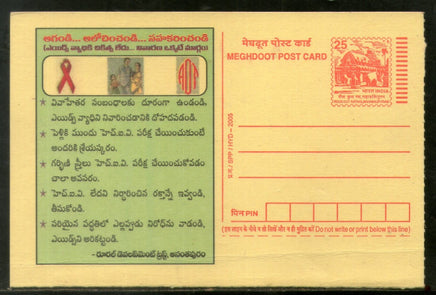 ఆగండి... ఆలోచించండి... సహకరించండి
(ఎయిడ్స్ వ్యాధికి చికిత్స లేదు... నివారణ ఒక్కటే మార్గం)
★ వివాహేతర సంబంధాలకు దూరంగా ఉండండి,
ఎయిడ్స్ వ్యాధిని నివారించడానికి దోహదపడండి.
★ పెళ్లికి ముందు హెచ్.ఐ.వి. పరీక్ష చేయించుకుంటే
అందరికి శ్రేయస్కరం.
★ గర్భిణీ స్త్రీలు హెచ్.ఐ.వి. పరీక్ష చేయించుకోవడం
చాలా అవసరం.
★ హెచ్.ఐ.వి. లేదని నిర్ధారించిన రక్తాన్నే ఇవ్వండి,
తీసుకోండి.
★ సరియైన పద్ధతిలో ఎల్లప్పుడు నిరోధ్‌ను వాడండి,
ఎయిడ్స్‌ని అరికట్టండి.
- రూరల్ డెవలప్‌మెంట్ ట్రస్ట్, అనంతపురం
मेघदूत पोस्ट कार्ड
MEGHDOOT POST CARD
25
भारत INDIA
प्र.म./SPP / HYD – 2005
पिन PIN
(इस लाइन के नीचे न तो लिखें और न ही मुद्रित करें Do not write or print below this line)